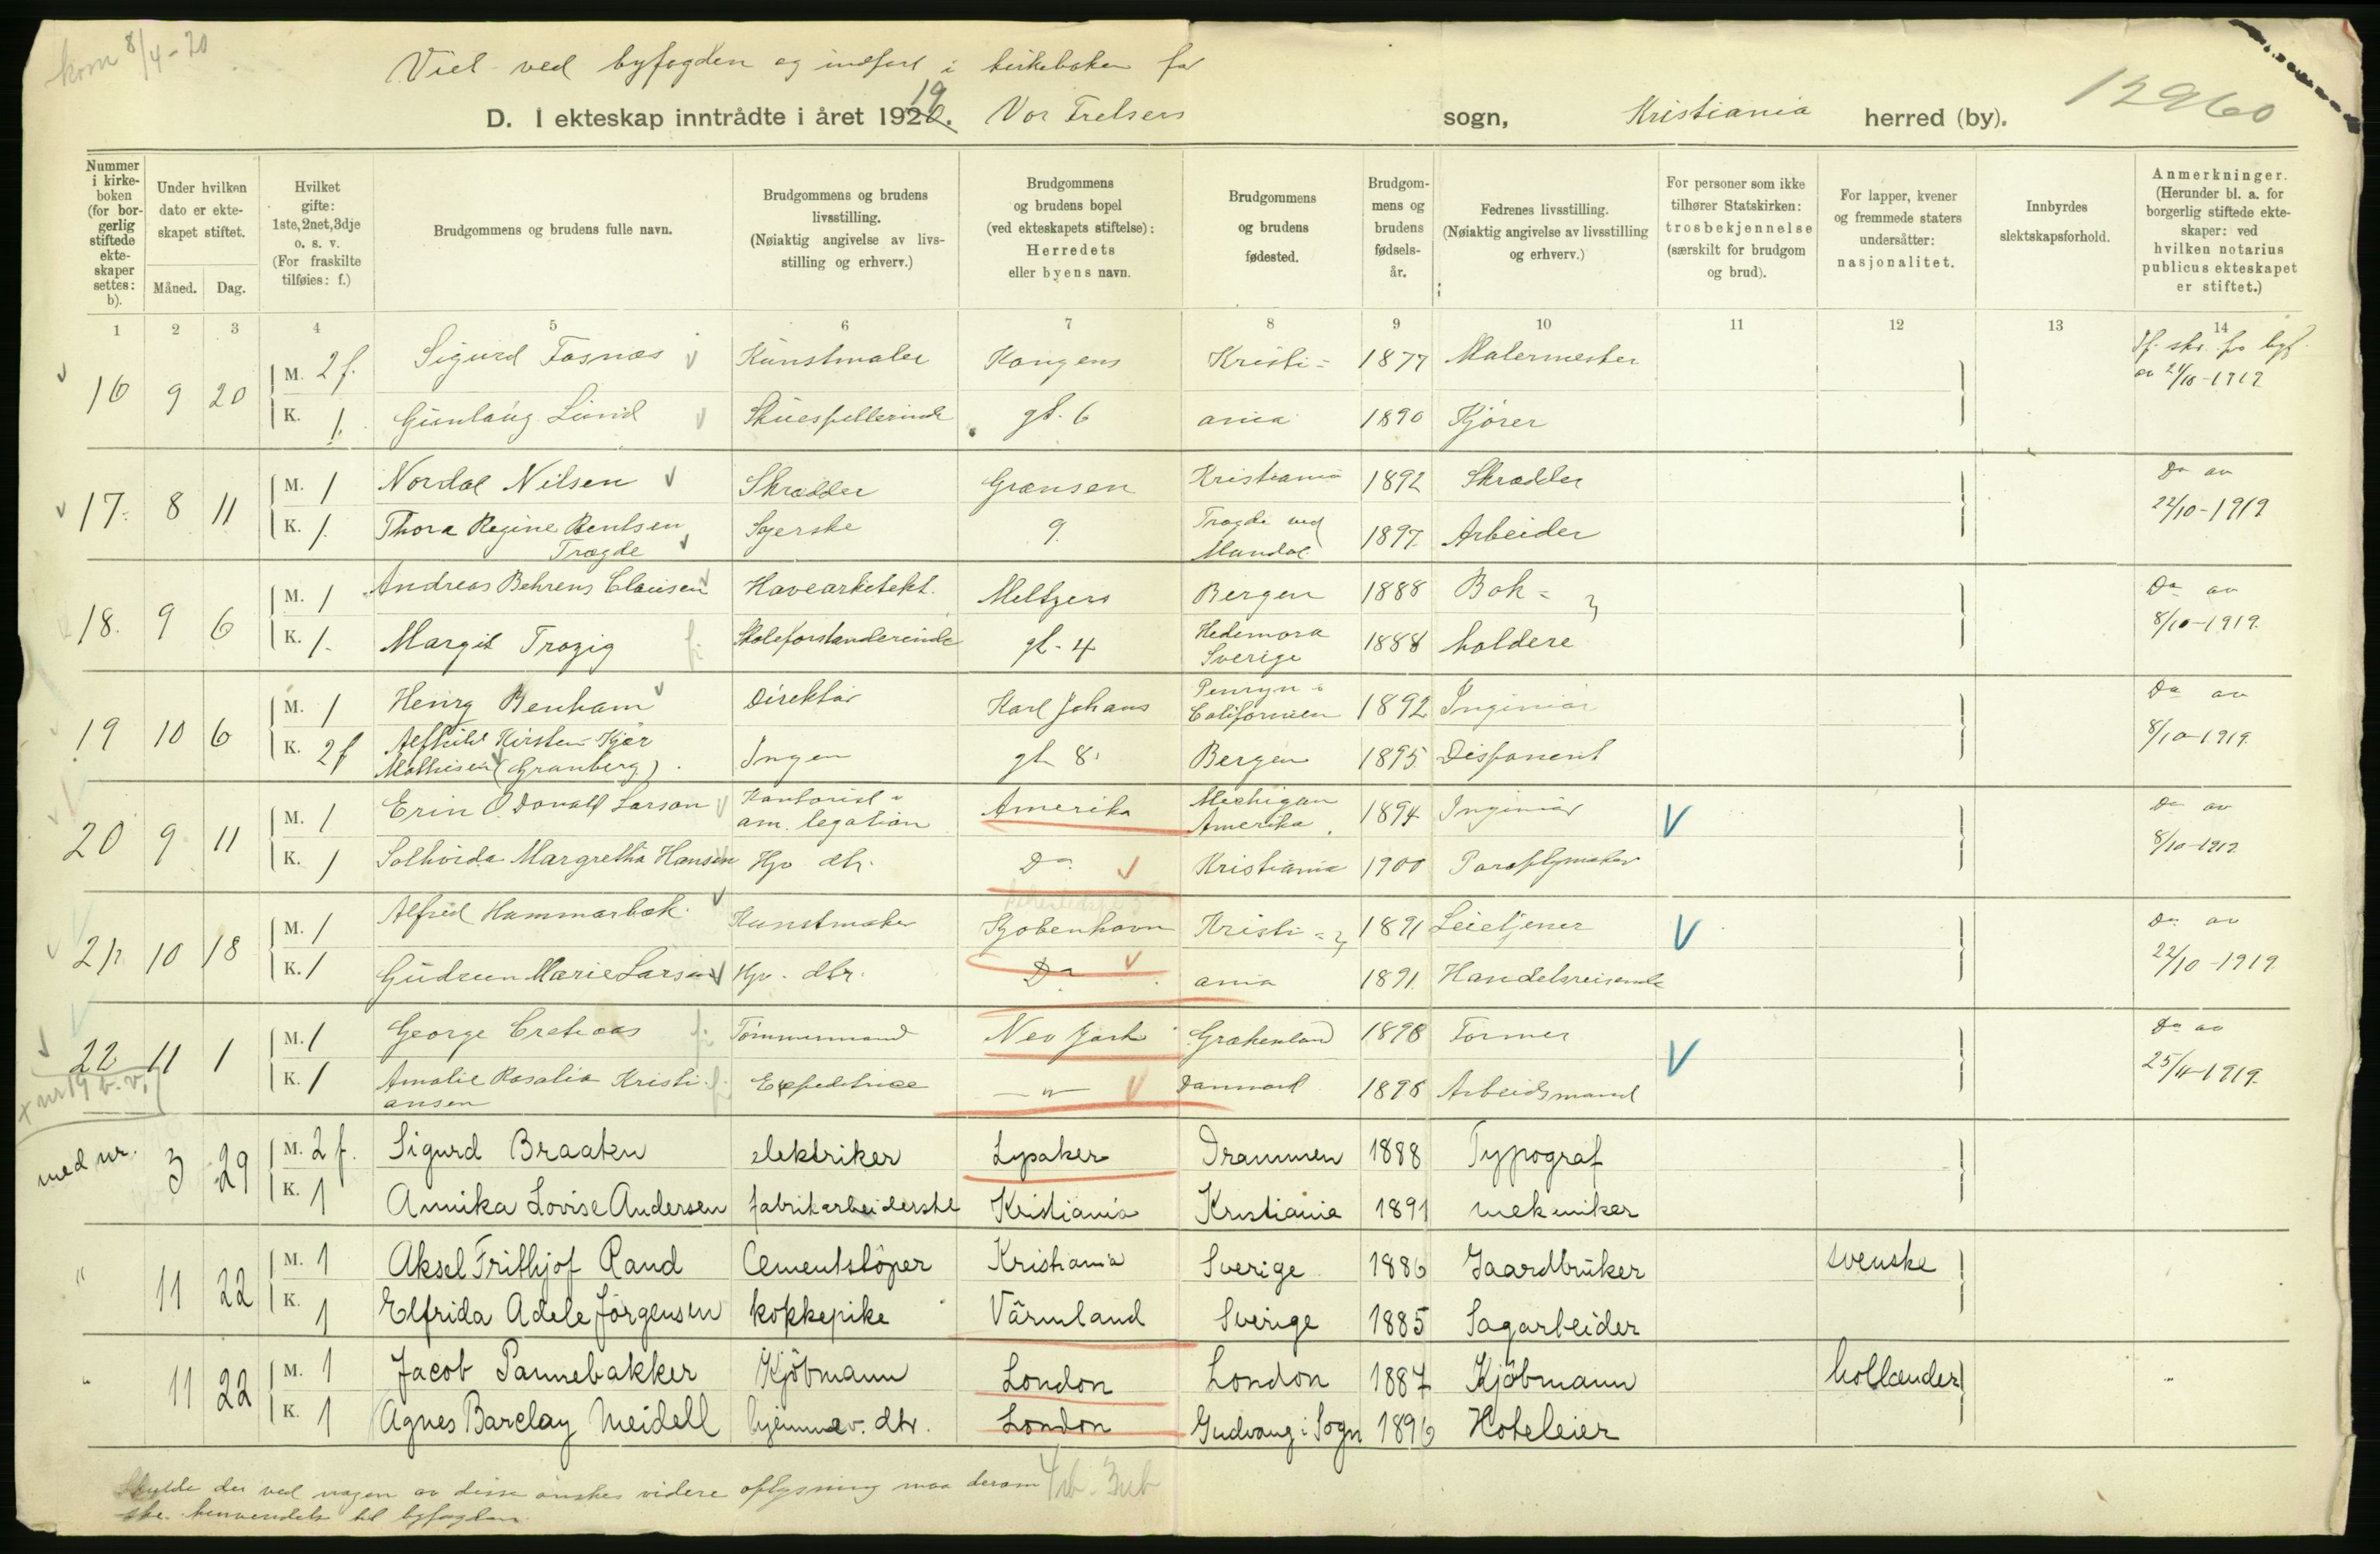 kom 8/4-20
Viet ved byfogden og indført i kirkeboken for
D. I ekteskap inntrådte i året 1920. 19 Vor Frelsers sogn, Kristiania herred (by). 12960
Nummer i kirkeboken (for borgerlig stiftede ekteskaper settes: b).
Under hvilken dato er ekteskapet stiftet.
Måned. Dag.
Hvilket gifte: 1ste, 2net, 3dje o. s. v. (For fraskilte tilføies: f.)
Brudgommens og brudens fulle navn.
Brudgommens og brudens livsstilling. (Nøiaktig angivelse av livsstilling og erhverv.)
Brudgommens og brudens bopel (ved ekteskapets stiftelse): Herredets eller byens navn.
Brudgommens og brudens fødested.
Brudgommens og brudens fødselsår.
Fedrenes livsstilling. (Nøiaktig angivelse av livsstilling og erhverv.)
For personer som ikke tilhører Statskirken: trosbekjennelse (særskilt for brudgom og brud).
For lapper, kvener og fremmede staters undersåtter: nasjonalitet.
Innbyrdes slektskapsforhold.
Anmerkninger. (Herunder bl. a. for borgerlig stiftede ekteskaper: ved hvilken notarius publicus ekteskapet er stiftet.)
1 2 3 4 5 6 7 8 9 10 11 12 13 14
16 9 20 M. 2 f. Sigurd Fosnæs Kunstmaler Kongens Kristi- 1877 Malermester
K. 1. Gunlaug Lund Skuespillerinde gt. 6 ania 1890 Kjører
17. 8 11 M. 1 Nordal Nilsen Skrædder Grænsen Kristiania 1892 Skrædder Do av
K. 1. Thora Regine Bentsen Trægde Syerske 9. Trægde ved Mandal 1897. Arbeider 22/10-1919
18. 9 6 M. 1 Andreas Behrens Clausen Havearkitekt. Meltzers Bergen 1888 Bok- Do av
K. 1. Margit Trozig Skoleforstanderinde gt. 4 Hedemora Sverige 1888 holdere 8/10-1919.
19 10 6 M. 1 Henry Benham Direktør Karl Johans Penryn i Californien 1892 Ingeniør Do av
K. 2 f Alfhild Kirsten Kjær Mathisen (Granberg). Ingen gt 8. Bergen 1895 Disponent 8/10-1919.
20 9 11 M. 1 Erin O. Donall Larson Kontorist v am. legation Amerika Mechigan Amerika. 1894 Ingeniør Do av
K. 1 Solveida Margretha Hansen Hjv. dtr. Do Kristiania 1900 Paraplymaker 8/10-1919.
21. 10 18 M. 1 Alfred Hammarbæk Kunstmaler Kjøbenhavn Kristi- 1891 Leietjener Do av
K. 1 Gudrun Marie Larsen Hjv. dtr. Do ania 1891. Handelsreisende 22/10-1919.
22 11 1 M. 1 George Cretioas Tømmermand New York Grækenland 1898 Former Do av
K. 1 Amalie Rosalia Kristiansen Expeditrice - " - Danmark 1898 Arbeidsmand 25/11-1919.
med nr. 3 29 M. 2 f. Sigurd Braaten elektriker Lysaker Drammen 1888 Typograf
K. 1 Annika Lovise Andersen fabrikarbeiderske Kristiania Kristiania 1891 mekaniker
" 11 22 M. 1 Aksel Frithjof Rand Cementstöper Kristiania Sverige 1886 Gaardbruker svenske
K. 1 Elfrida Adele Jörgensen kokkepike Värmland Sverige 1885 Sagarbeider
" 11 22 M. 1 Jacob Pannebakker Kjöbmann London London 1887 Kjöbmann hollænder "
K. 1 Agnes Barclay Meidell hjemmev. dtr. London Gudvang i Sogn 1896 Hoteleier
Skulde der ved nogen av disse ønskes videre oplysning maa derom
ske henvendelse til byfogden.